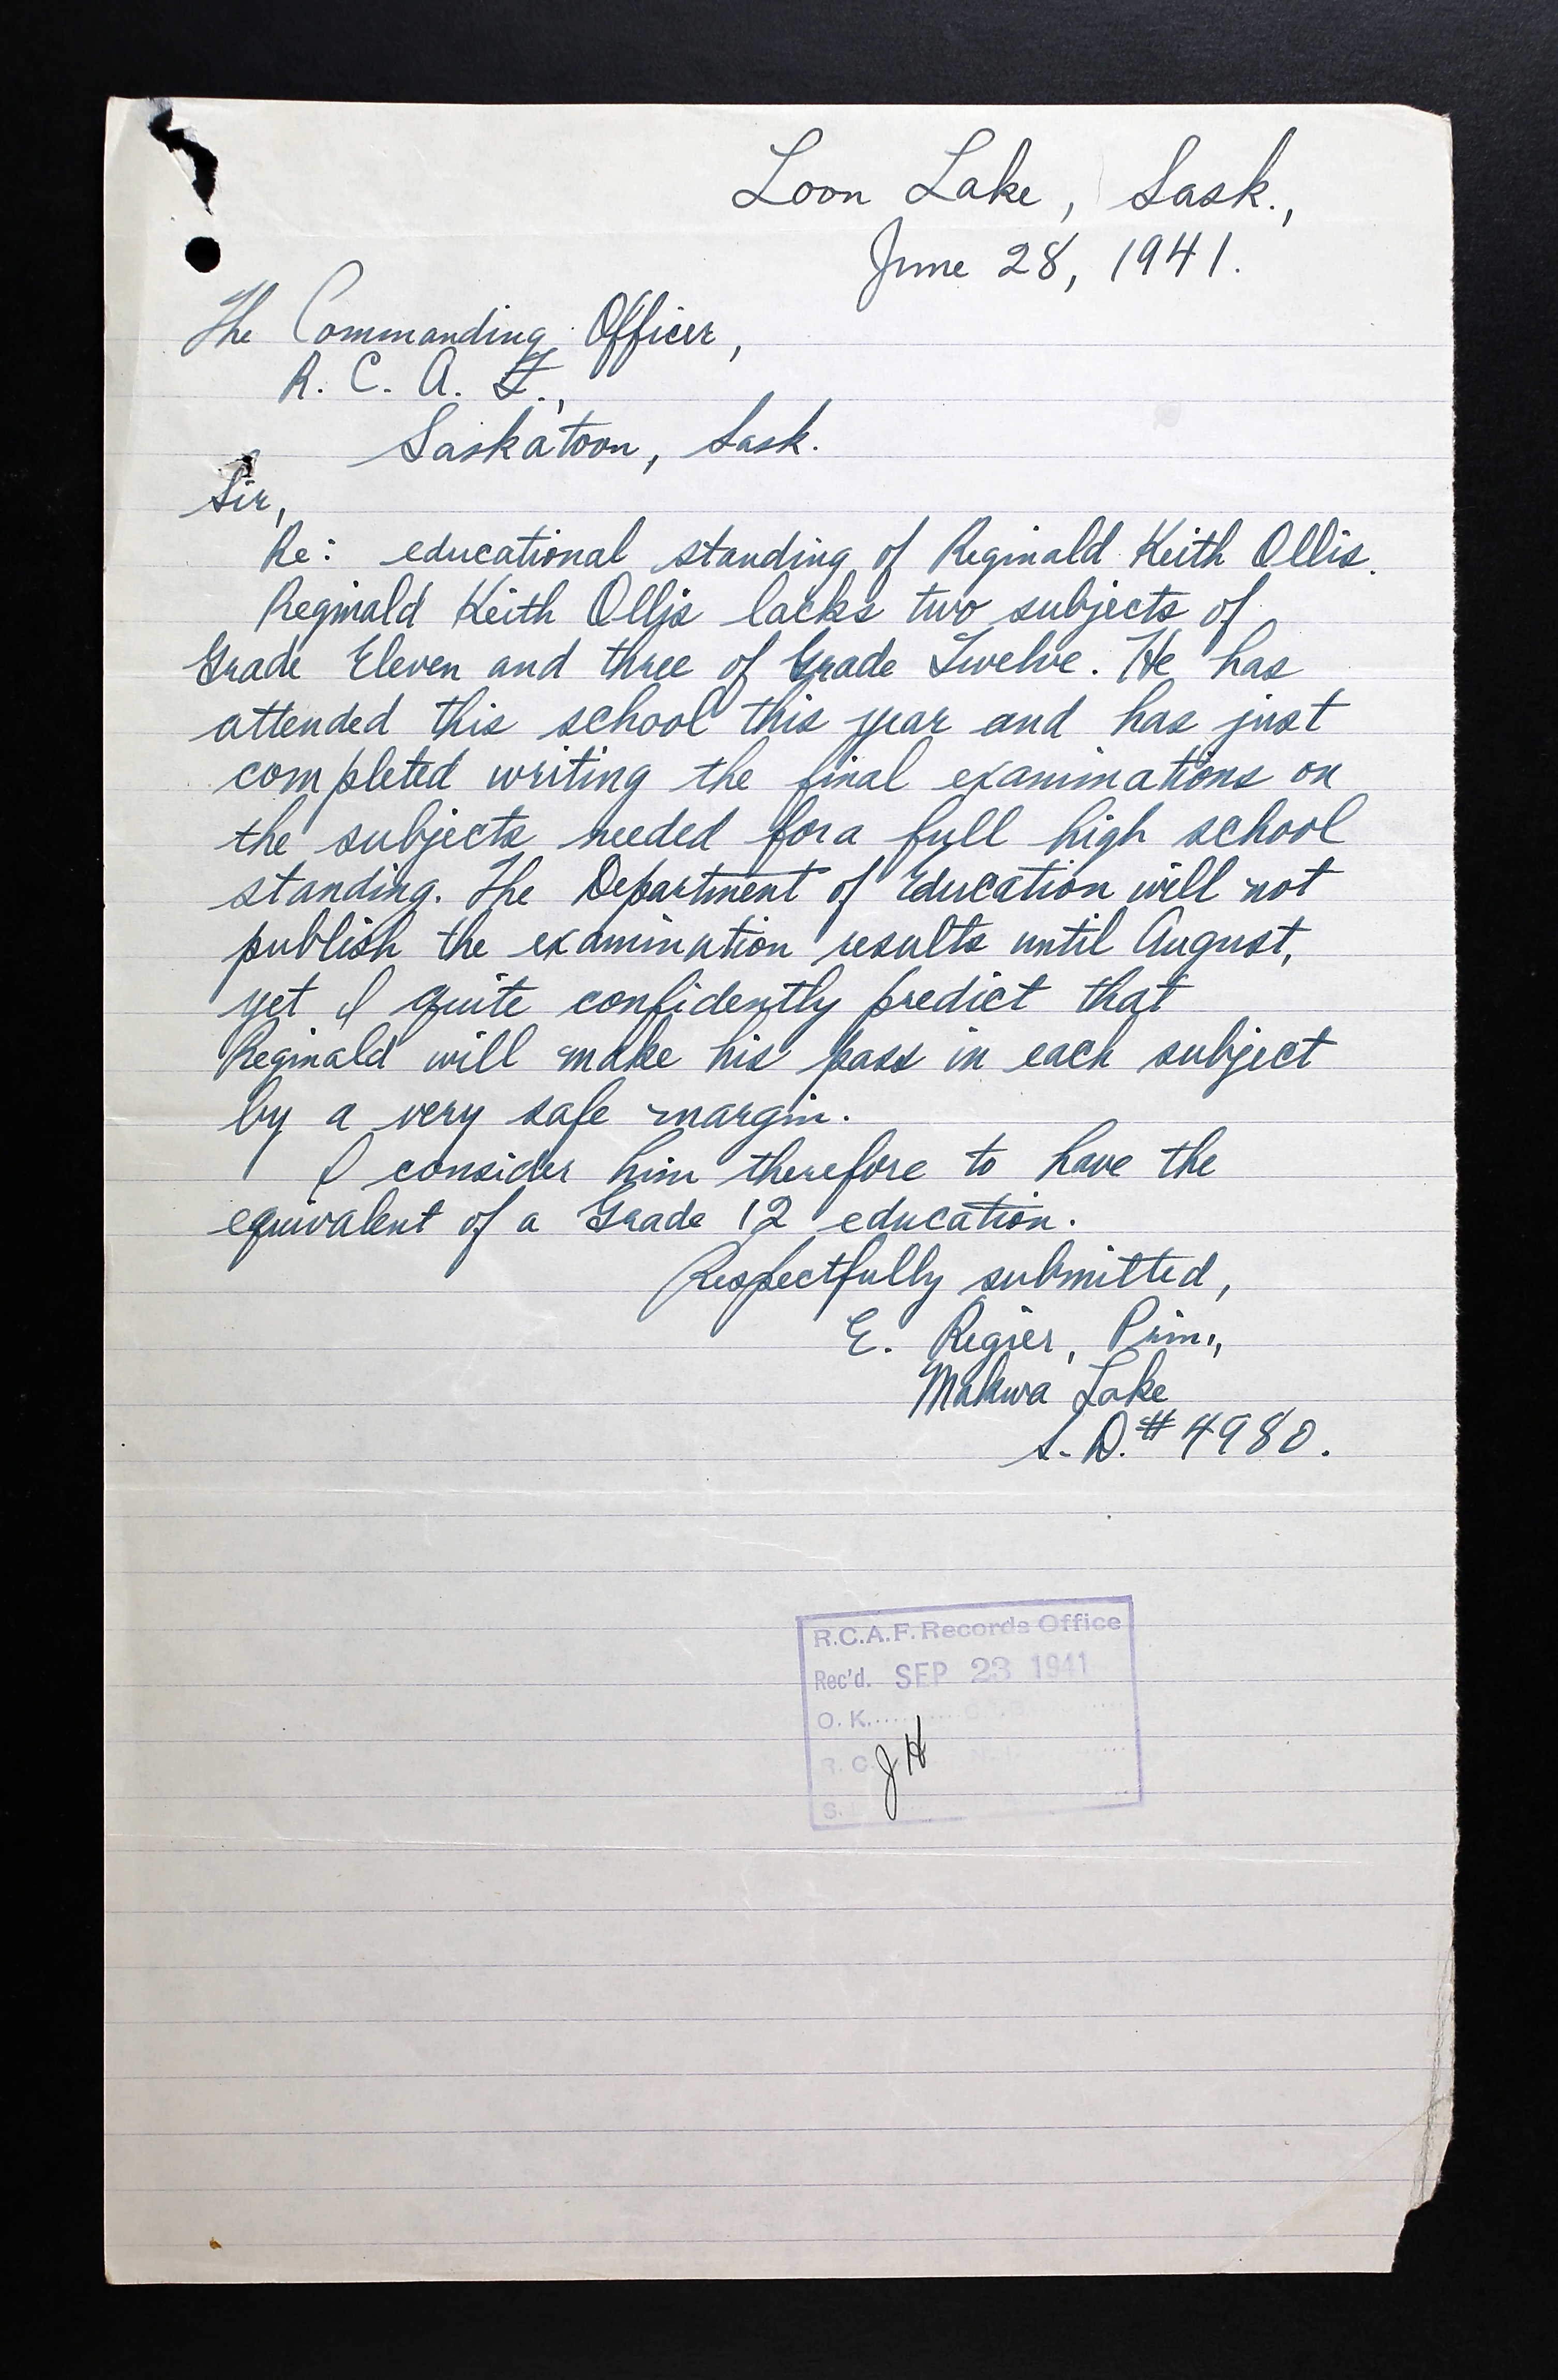 Loon Lake, Sask.,
June 28, 1941.
The Commanding Officer,
R. C. A. F.,
Saskatoon, Sask.
Sir,
Re: educational standing of Reginald Keith Ollis.
Reginald Keith Ollis lacks two subjects of
Grade Eleven and three of Grade Twelve. He has
attended this school this year and has just
completed writing the final examinations on
the subjects needed for a full high school
standing. The Department of Education will not
publish the examination results until August,
yet I quite confidently predict that
Reginald will make his pass in each subject
by a very safe margin.
I consider him therefore to have the
equivalent of a Grade 12 education.
Respectfully submitted,
E. Regier, Prin.,
Makwa Lake
S. D. # 4980.
R.C.A.F. Records Office
Rec'd. SEP 23 1941
O. K.
R. C.
JH
S.